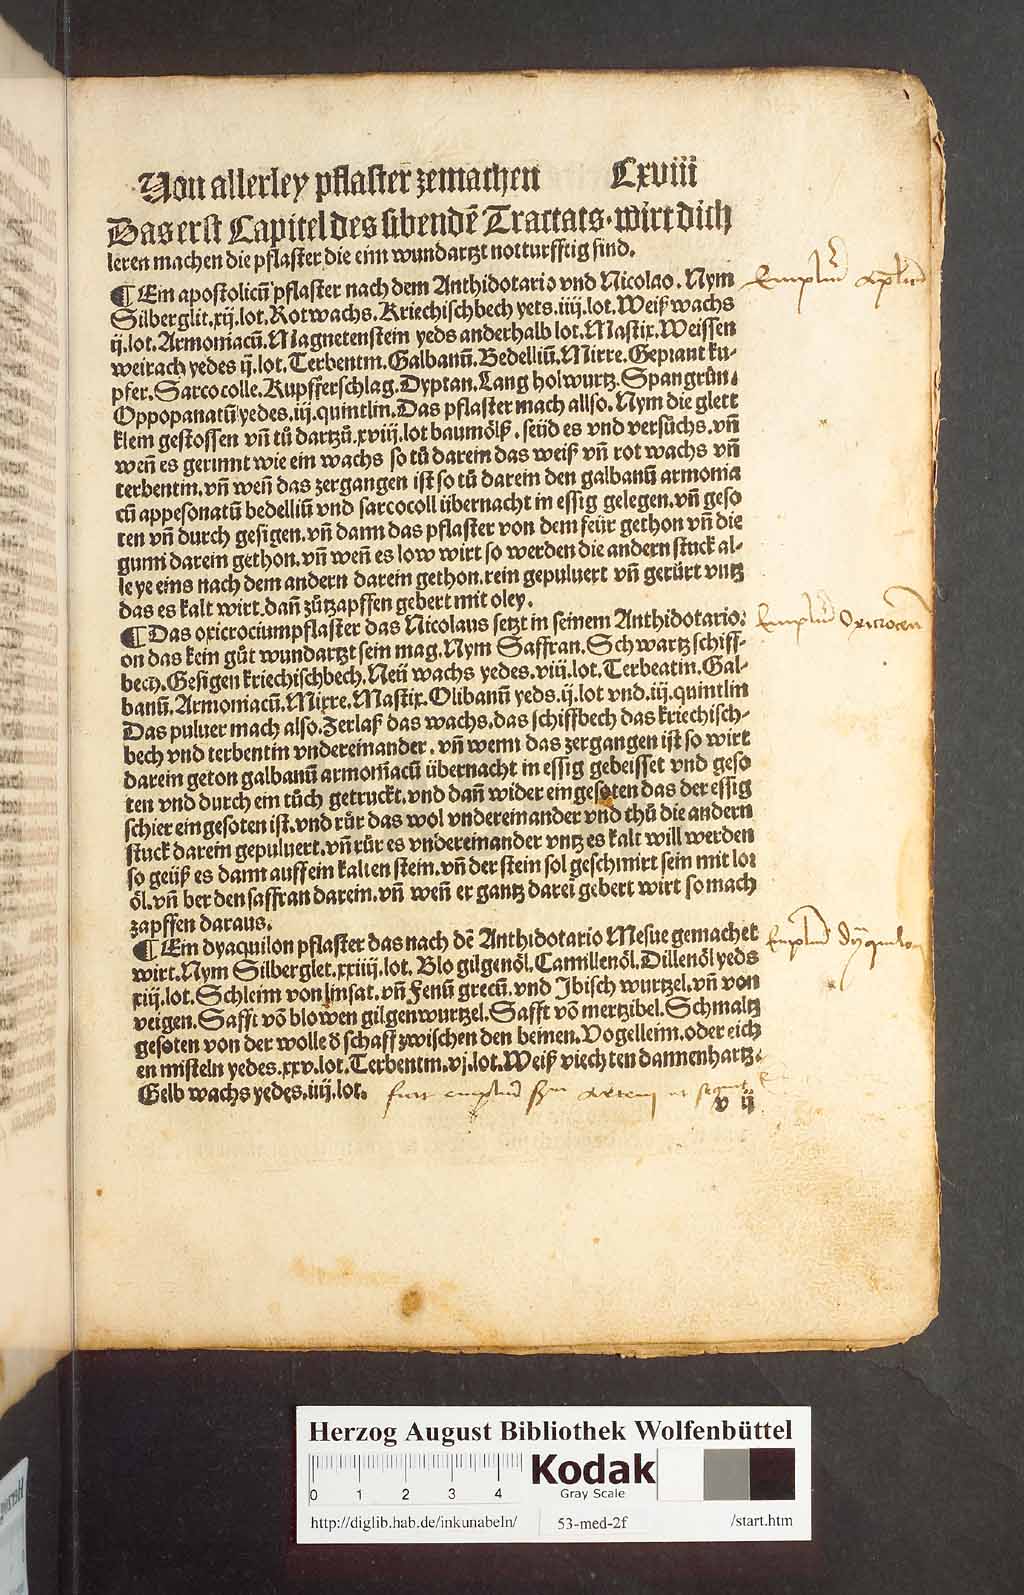 Von allerley pflaster zemachen Cxviii
Das erst Capitel des sibendē Tractats. wirt dich
leren machen die pflaster die einn wundartzt notturfftig sind.
¶ Ein apostolicū pflaster nach dem Anthidotario vnd Nicolao. Nym
Silberglit.xij.lot.Rotwachs.Kriechischbech yets.iiij.lot.Weiß wachs
ij.lot.Armoniacū.Magnetenstein yeds anderhalb lot.Mastix.Weissen
weirach yedes ij.lot.Terbentin.Galbanū.Bedelliū.Mirre.Geprant ku-
pfer.Sarcocolle.Kupfferschlag.Dyptan.Lang holwurtz.Spangrůn.
Oppopanatū yedes.iij.quintlin.Das pflaster mach allso.Nym die glett
klein gestossen vn̄ tů dartzů.xviij.lot baumölß.seüd es vnd versůchs.vn̄
wen̄ es gerinnt wie ein wachs so tů darein das weiß vn̄ rot wachs vn̄
terbentin.vn̄ wen̄ das zergangen ist so tů darein den galbanū armonia
cū appesonatū bedelliū vnd sarcocoll übernacht in essig gelegen.vn̄ geso
ten vn̄ durch gesigen.vn̄ dann das pflaster von dem feür gethon vn̄ die
gumi darein gethon.vn̄ wen̄ es low wirt so werden die andern stuck al-
le ye eins nach dem andern darein gethon.rein gepuluert vn̄ gerürt vntz
das es kalt wirt.dan̄ zůtzapffen gebert mit oley.
¶ Das oxicrociumpflaster das Nicolaus setzt in seinem Anthidotario:
on das kein gůt wundartzt sein mag.Nym Saffran.Schwartz schiff-
bech.Gesigen kriechischbech.Neü wachs yedes.viij.lot.Terbeatin.Gal-
banū.Armoniacū.Mirre.Mastix.Olibanū yeds.ij.lot vnd.iij.quintlin
Das puluer mach also.Zerlaß das wachs.das schiffbech das kriechisch-
bech vnd terbentin vndereinander.vn̄ wenn das zergangen ist so wirt
darein geton galbanū armoniacū übernacht in essig gebeisset vnd geso
ten vnd durch ein tůch getruckt.vnd dan̄ wider eingesoten das der essig
schier eingesoten ist.vnd růr das wol vndereinander vnd thů die andern
stuck darein gepuluert.vn̄ růr es vndereinander vntz es kalt will werden
so geüß es dann auff ein kalten stein.vn̄ der stein sol geschmirt sein mit lor
öl.vn̄ ber den saffran darein.vn̄ wen̄ er gantz darei gebert wirt so mach
zapffen daraus.
¶ Ein dyaquilon pflaster das nach dē Anthidotario Mesue gemachet
wirt.Nym Silberglet.xxiiij.lot.Blo gilgenöl.Camillenöl.Dillenöl yeds
xiij.lot.Schleim von linsat.vn̄ Fenū grecū.vnd Ibisch wurtzel.vn̄ von
veigen.Safft vō blowen gilgenwurtzel.Safft vō mertzibel.Schmaltz
gesoten von der wolle d̄ schaff zwischen den beinen.Vogelleim.oder eich
en misteln yedes.xxv.lot.Terbentin.vj.lot.Weiß viechten dannenhartz.
Gelb wachs yedes.iiij.lot.
v ij
Herzog August Bibliothek Wolfenbüttel
0 1 2 3 4
Kodak
Gray Scale
http://diglib.hab.de/inkunabeln/ 53-med-2f /start.htm